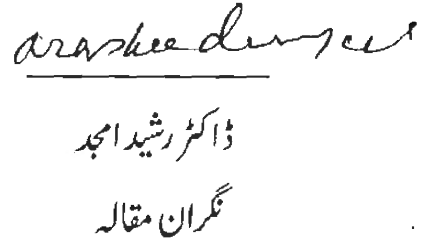 ڈاکٹر رشید امجد
نگران مقالہ